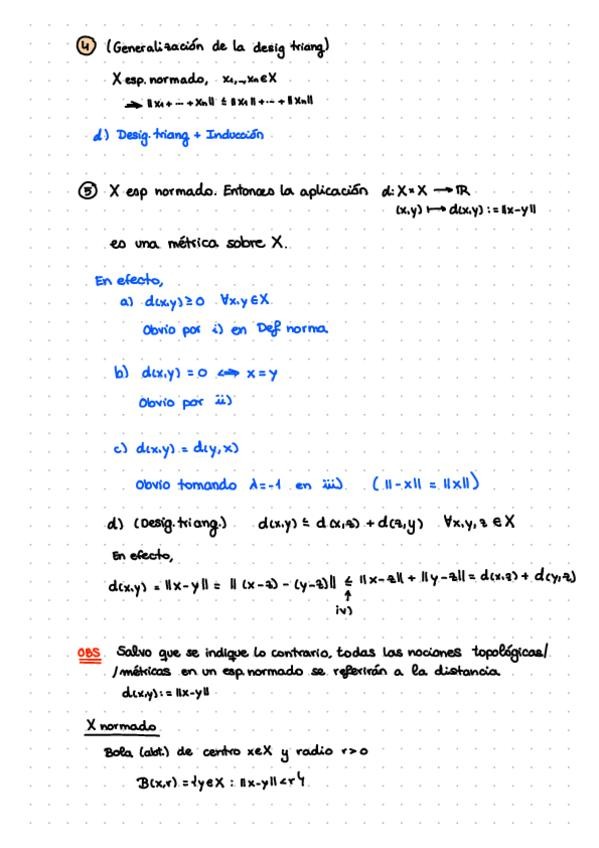 ④ (Generalización de la desig triang)
X esp. normado, x₁,...,xₙ ∈ X
⟹ ‖x₁ + ... + xₙ‖ ≤ ‖x₁‖ + ... + ‖xₙ‖
d) Desig. triang + Inducción
⑤ X esp normado. Entonces la aplicación d: X × X ⟶ ℝ
(x,y) ⟼ d(x,y) := ‖x-y‖
es una métrica sobre X.
En efecto,
a) d(x,y) ≥ 0 ∀x,y ∈ X
Obvio por i) en Def norma
b) d(x,y) = 0 ⟺ x = y
Obvio por ii)
c) d(x,y) = d(y,x)
Obvio tomando λ = -1 en iii) (‖-x‖ = ‖x‖)
d) (Desig. triang.) d(x,y) ≤ d(x,z) + d(z,y) ∀x,y,z ∈ X
En efecto,
d(x,y) = ‖x-y‖ = ‖(x-z) - (y-z)‖ ≤ ‖x-z‖ + ‖y-z‖ = d(x,z) + d(y,z)
↑
iv)
OBS Salvo que se indique lo contrario, todas las nociones topológicas/
/métricas en un esp. normado se referirán a la distancia
d(x,y) := ‖x-y‖
X normado
Bola (abt.) de centro x∈X y radio r>0
B(x,r) = {y∈X : ‖x-y‖ < r}